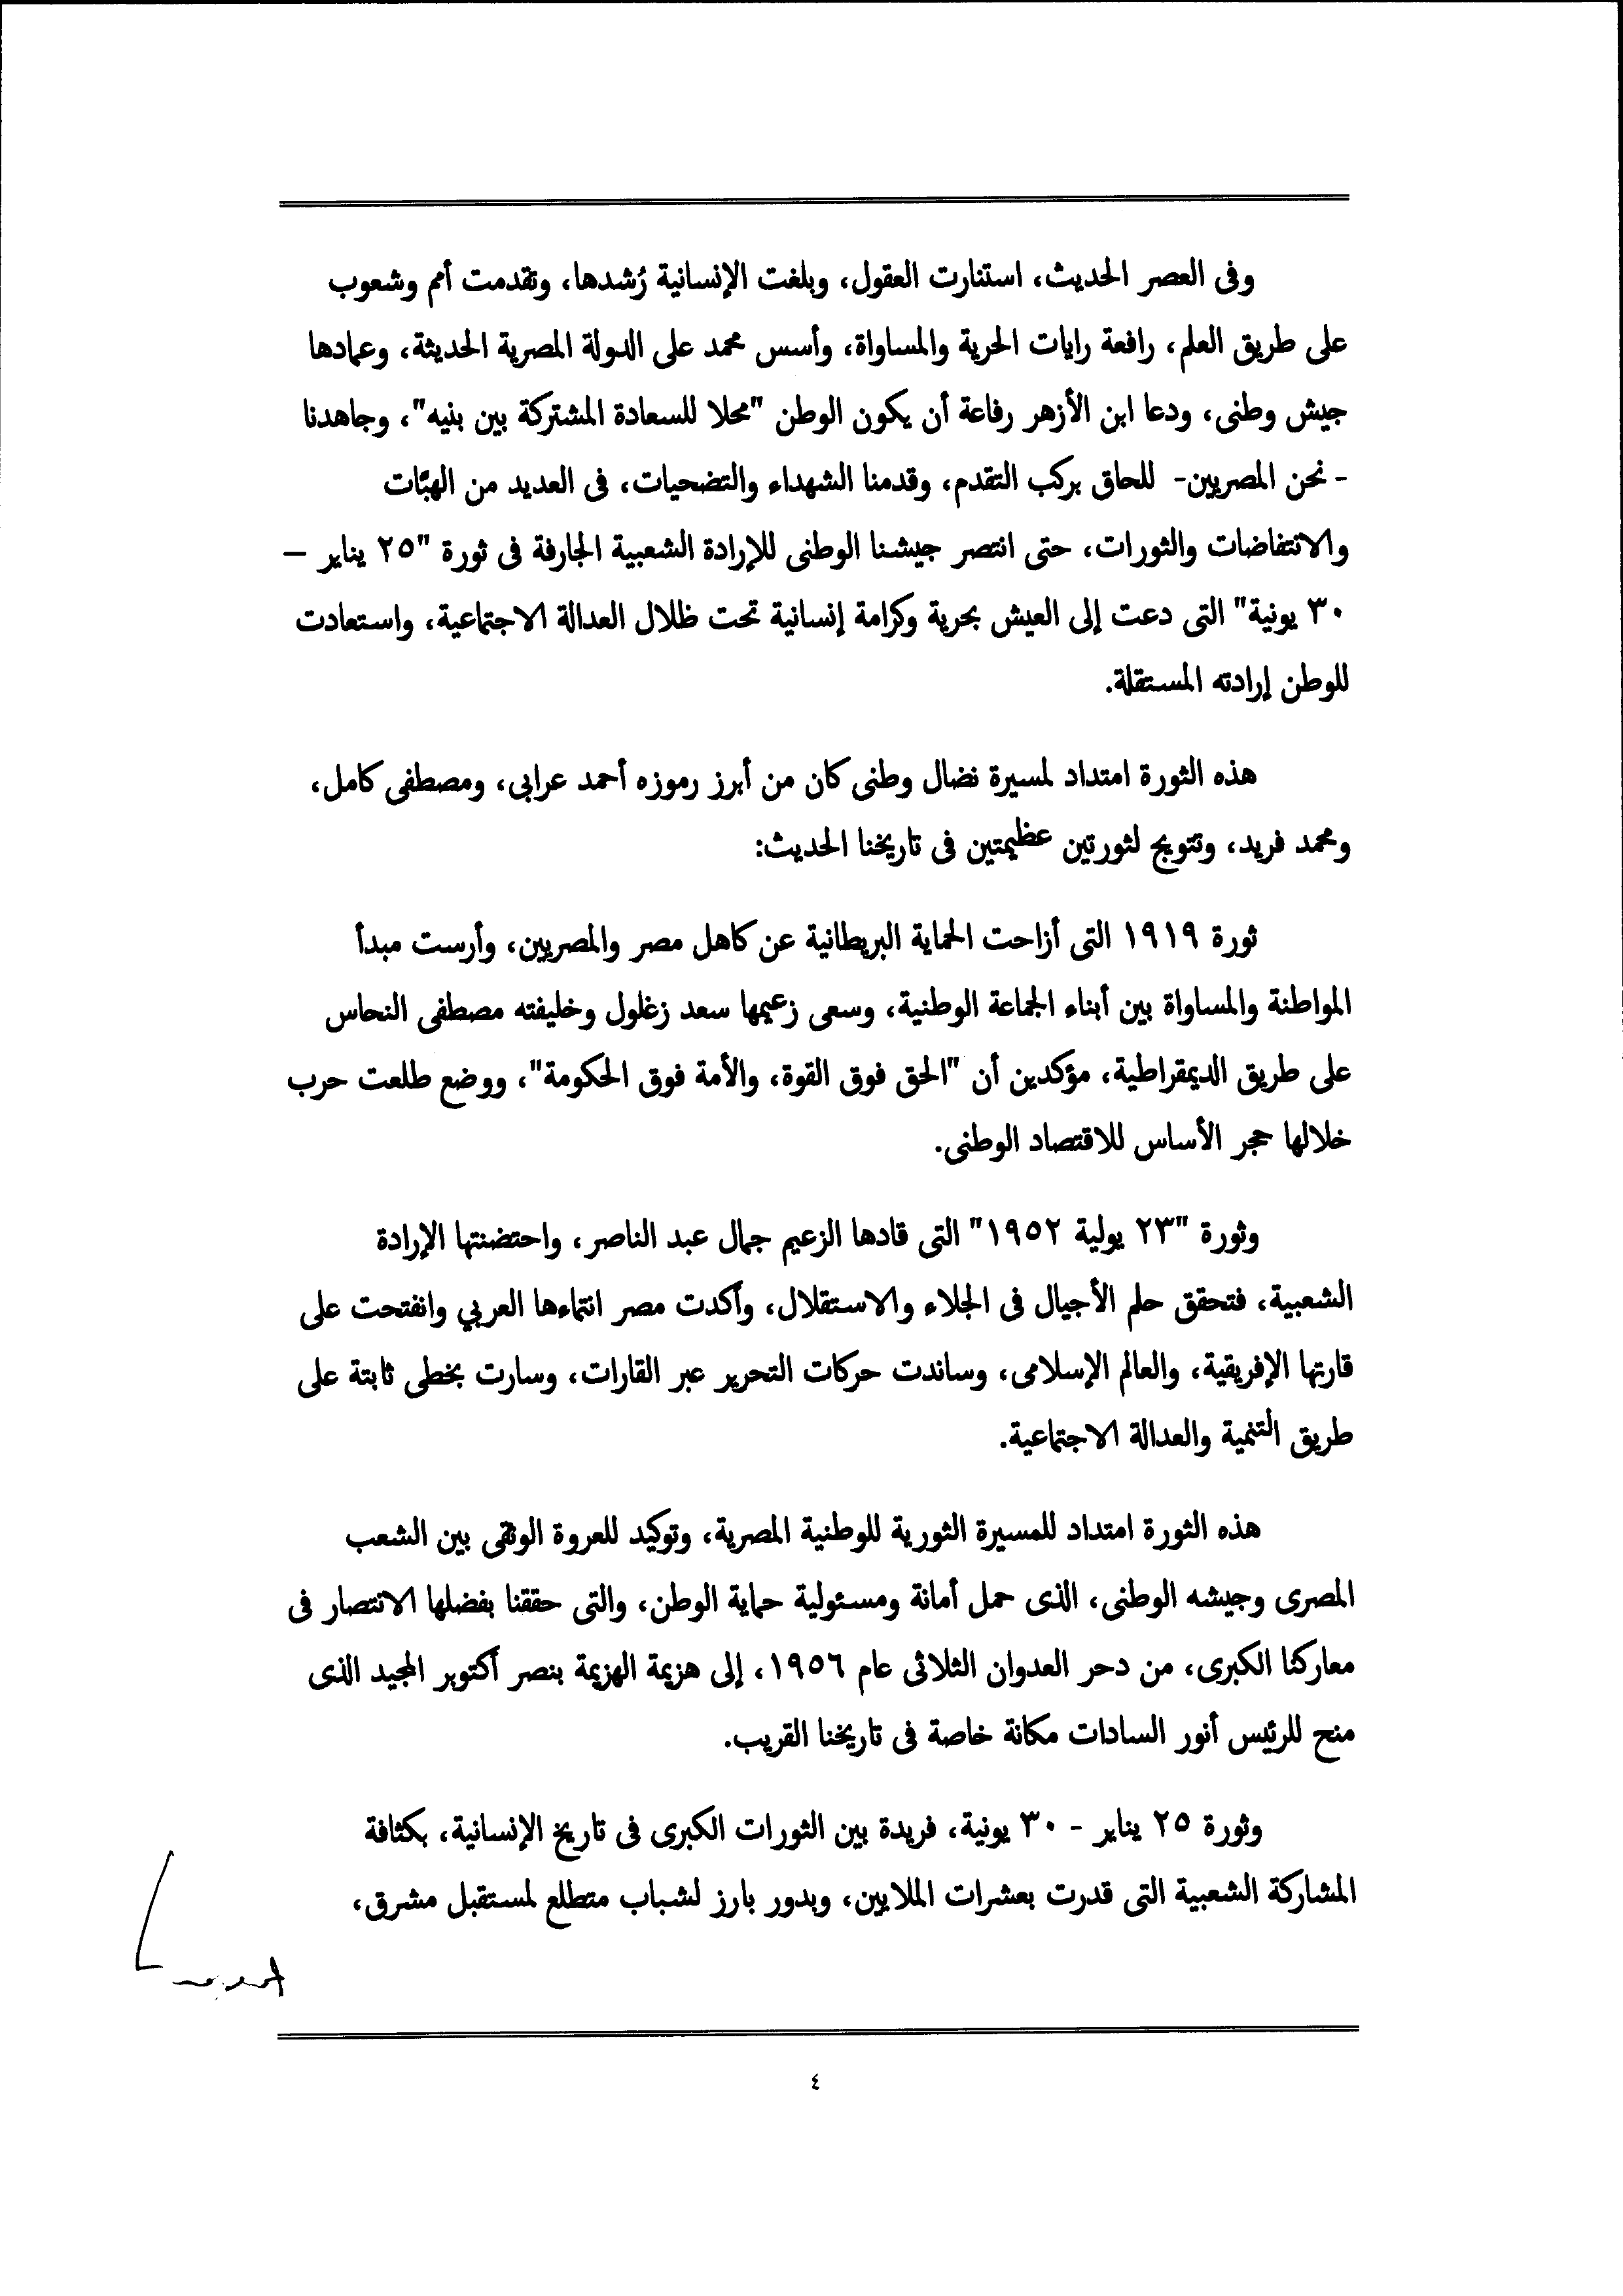 وفى العصر الحديث، استنارت العقول، وبلغت الإنسانية رُشدها، وتقدمت أمم وشعوب
على طريق العلم، رافعة رايات الحرية والمساواة، وأسس محمد على الدولة المصرية الحديثة، وعمادها
جيش وطنى، ودعا ابن الأزهر رفاعة أن يكون الوطن "محلا للسعادة المشتركة بين بنيه"، وجاهدنا
- نحن المصريين- للحاق بركب التقدم، وقدمنا الشهداء والتضحيات، فى العديد من الهبّات
والانتفاضات والثورات، حتى انتصر جيشنا الوطنى للإرادة الشعبية الجارفة فى ثورة "٢٥ يناير –
٣٠ يونية" التى دعت إلى العيش بحرية وكرامة إنسانية تحت ظلال العدالة الاجتماعية، واستعادت
للوطن إرادته المستقلة.
هذه الثورة امتداد لمسيرة نضال وطنى كان من أبرز رموزه أحمد عرابى، ومصطفى كامل،
ومحمد فريد، وتتويج لثورتين عظيمتين فى تاريخنا الحديث:
ثورة ١٩١٩ التى أزاحت الحماية البريطانية عن كاهل مصر والمصريين، وأرست مبدأ
المواطنة والمساواة بين أبناء الجماعة الوطنية، وسعى زعيمها سعد زغلول وخليفته مصطفى النحاس
على طريق الديمقراطية، مؤكدين أن "الحق فوق القوة، والأمة فوق الحكومة"، ووضع طلعت حرب
خلالها حجر الأساس للاقتصاد الوطنى.
وثورة "٢٣ يولية ١٩٥٢" التى قادها الزعيم جمال عبد الناصر، واحتضنتها الإرادة
الشعبية، فتحقق حلم الأجيال فى الجلاء والاستقلال، وأكدت مصر انتماءها العربي وانفتحت على
قارتها الإفريقية، والعالم الإسلامى، وساندت حركات التحرير عبر القارات، وسارت بخطى ثابتة على
طريق التنمية والعدالة الاجتماعية.
هذه الثورة امتداد للمسيرة الثورية للوطنية المصرية، وتوكيد للعروة الوثقى بين الشعب
المصرى وجيشه الوطنى، الذى حمل أمانة ومسئولية حماية الوطن، والتى حققنا بفضلها الانتصار فى
معاركنا الكبرى، من دحر العدوان الثلاثى عام ١٩٥٦، إلى هزيمة الهزيمة بنصر أكتوبر المجيد الذى
منح للرئيس أنور السادات مكانة خاصة فى تاريخنا القريب.
وثورة ٢٥ يناير - ٣٠ يونية، فريدة بين الثورات الكبرى فى تاريخ الإنسانية، بكثافة
المشاركة الشعبية التى قدرت بعشرات الملايين، وبدور بارز لشباب متطلع لمستقبل مشرق،
٤